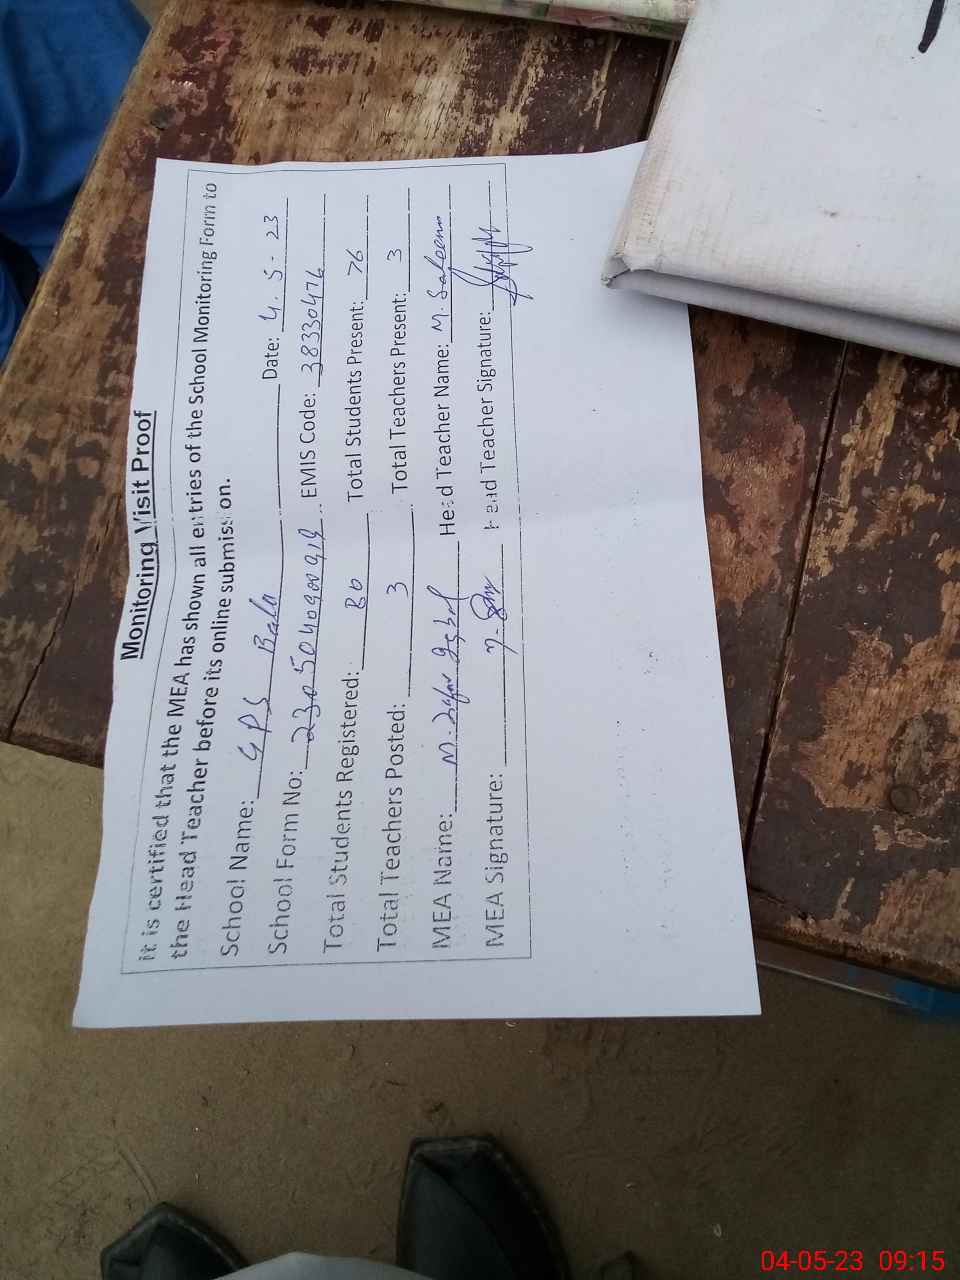 Monitoring Visit Proof
It is certified that the MEA has shown all entries of the School Monitoring Form to
the Head Teacher before its online submission.
School Name: GPS Bala Date: 4.5.23
School Form No: EMIS Code: 38330476
Total Students Registered: 80 Total Students Present: 76
Total Teachers Posted: 3 Total Teachers Present: 3
MEA Name: M. Head Teacher Name: M. Saleem
MEA Signature: Head Teacher Signature:
04-05-23 09:15